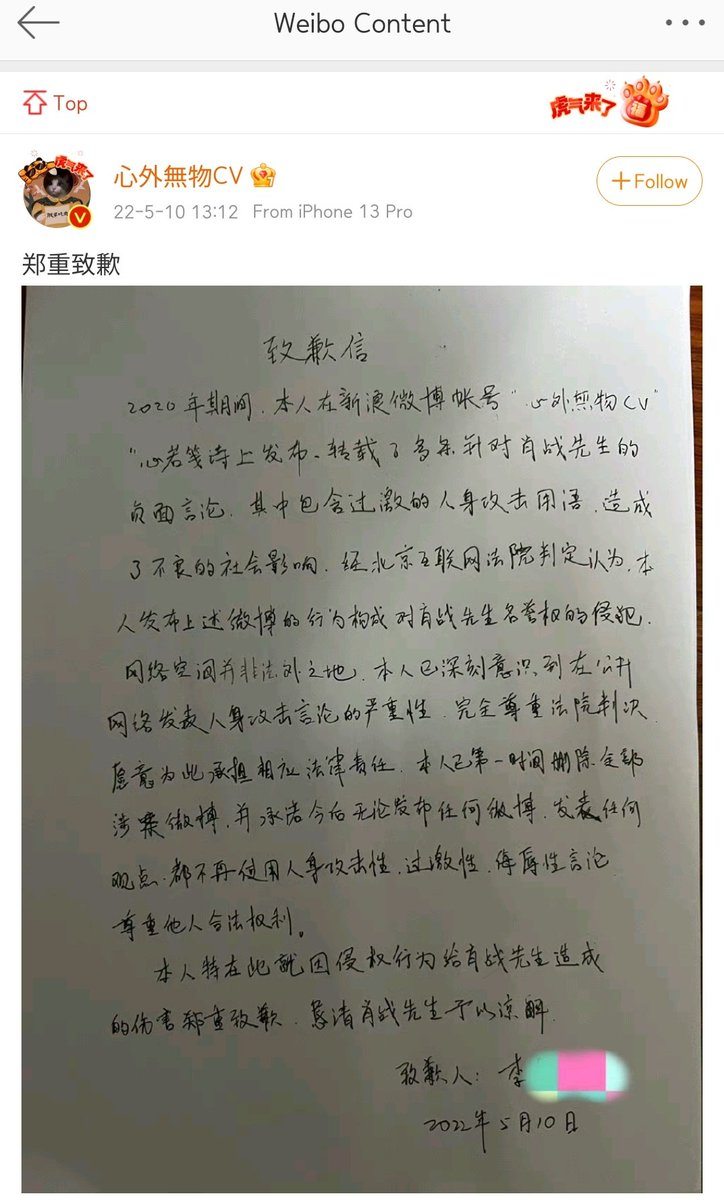 Weibo Content
Top
虎气来了
福
心外無物CV
22-5-10 13:12 From iPhone 13 Pro
+Follow
郑重致歉
致歉信
2020年期间，本人在新浪微博帐号"心外無物CV"
"心若笺诗上发布、转载了多条针对肖战先生的
负面言论，其中包含过激的人身攻击用语，造成
了不良的社会影响，经北京互联网法院判定认为，本
人发布上述微博的行为构成对肖战先生名誉权的侵犯。
网络空间并非法外之地，本人已深刻意识到在公开
网络发表人身攻击言论的严重性，完全尊重法院判决
愿意为此承担相应法律责任，本人已第一时间删除全部
涉案微博，并承诺今后无论发布任何微博，发表任何
观点，都不再使用人身攻击性，过激性，侮辱性言论
尊重他人合法权利。
本人特在此就因侵权行为给肖战先生造成
的伤害郑重致歉，恳请肖战先生予以谅解。
致歉人：李
2022年5月10日